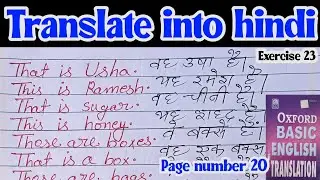 Translate into hindi
Exercise 23
That is Usha. वह उषा है।
This is Ramesh. यह रमेश है।
That is sugar. वह चीनी है।
This is honey. यह शहद है।
These are boxes. वे बक्से हैं।
That is a box. वह एक बक्स है।
These are bags.
Page number 20
OXFORD
BASIC
ENGLISH
TRANSLATION